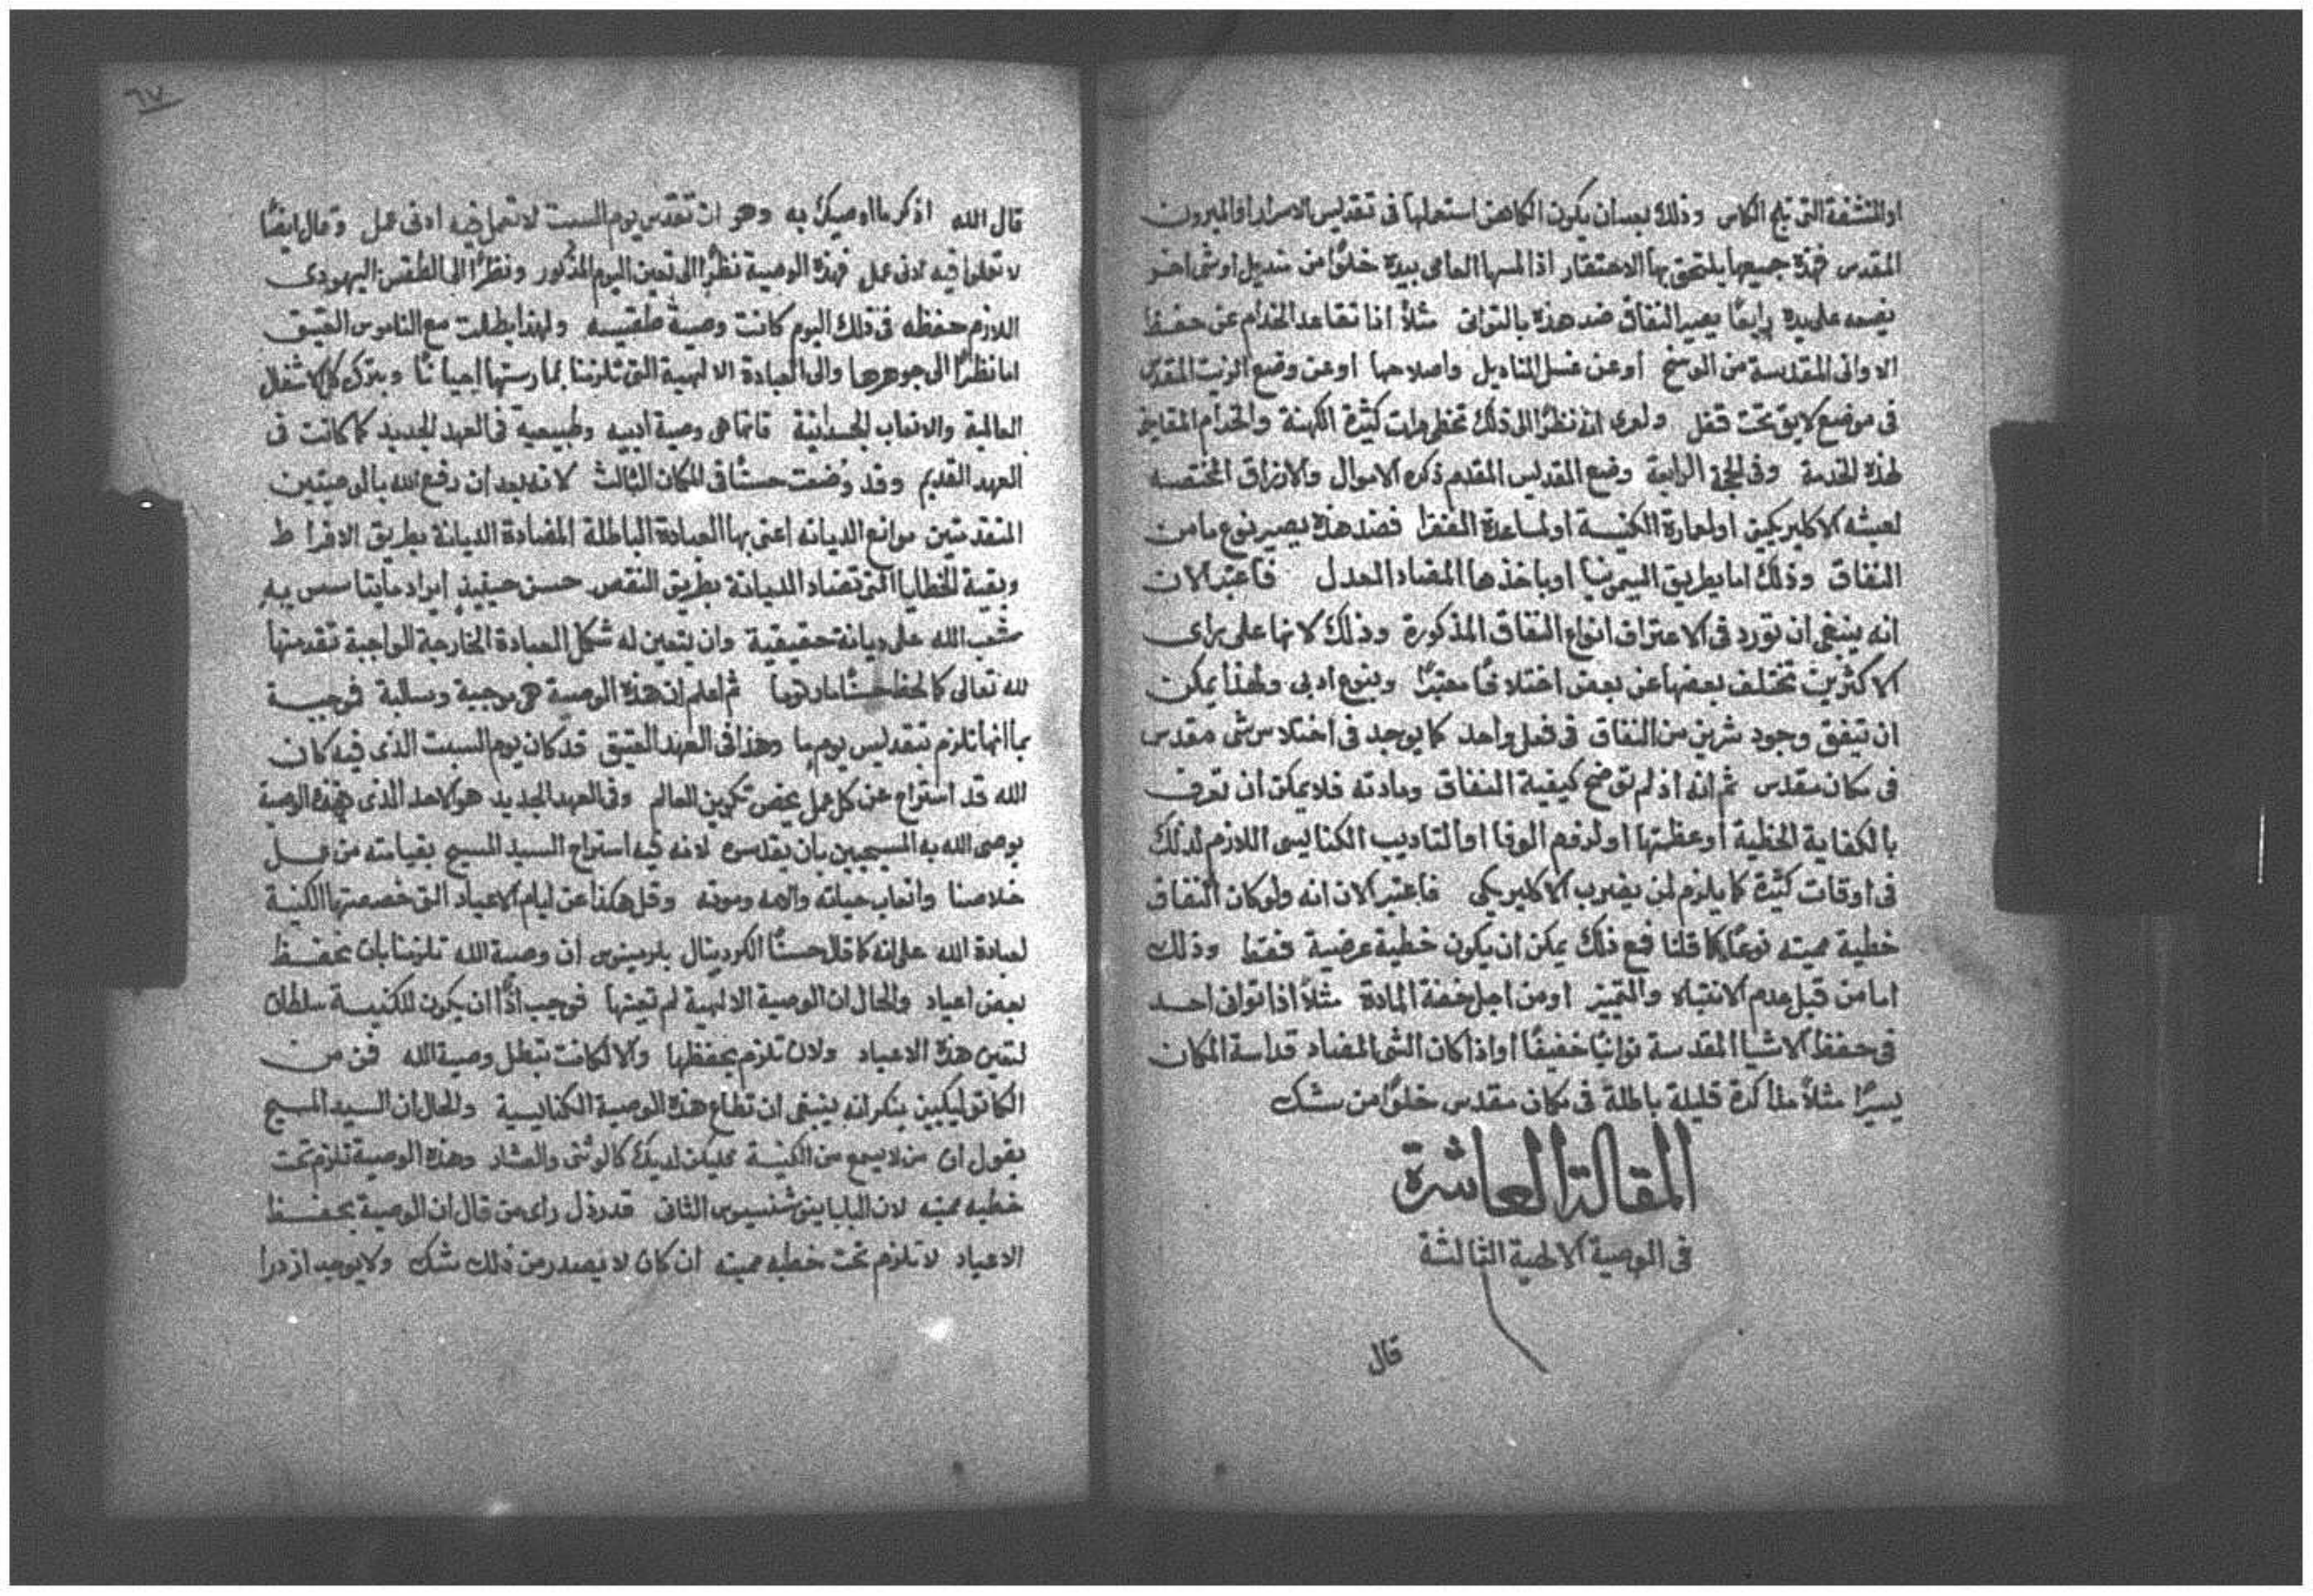 او المنشفة التي تلج الكاس وذلك بعد ان يكون الكاهن استعملها في تقديس الاسرار او الميرون
المقدس فهذه جميعها يلتحق بها الاحتقار اذا لمسها العامي بيده خلوًا من منديل او شي اخر
يضعه على يده رابعًا يصير النفاق ضد هذه بالتواني مثلًا اذا تقاعد الخدام عن حفظ
الاواني المقدسة من الوسخ او عن غسل المناديل واصلاحها او عن وضع الزيت المقدس
في موضع لايق تحت قفل ولعري انه نظرًا الى ذلك تخطي مرات كثيرة الكهنة والخدام المقامين
لهذه الخدمة وفي الجهة الرابعة وضع القديس المقدم ذكره الاموال والارزاق المختصه
لعيشة الاكليريكيين او لعمارة الكنيسة او لمساعدة الفقرا فضد هذه يصير نوع ما من
النفاق وذلك اما بطريق السيمونيا او باخذها المضاد العدل فاعتبر الان
انه ينبغي ان تورد في الاعتراف انواع النفاق المذكورة وذلك لانها على راى
الاكثرين تختلف بعضها عن بعض اختلافًا معتبرًا وبنوع ادبي ولهذا يمكن
ان تيفق وجود شرين من النفاق في فعل واحد كما يوجد في اختلاس شي مقدس
في مكان مقدس ثم انه اذ لم توضح كيفية النفاق ومادته فلا يمكن ان تعرف
بالكفاية الخطية او عظمتها او لزوم الوفا او التاديب الكنايسي اللازم لذلك
في اوقات كثيرة كما يلزم لمن يضرب الاكليريكي فاعتبر الان انه ولو كان النفاق
خطية مميته نوعًا كما قلنا فمع ذلك يمكن ان يكون خطية عرضية فقط وذلك
اما من قبل عدم الانتباه والتمييز او من اجل خفة المادة مثلًا اذا توانى احد
في حفظ الاشيا المقدسة توانيًا خفيفًا او اذا كان الشي المضاد قداسة المكان
يسيرًا مثلًا مذاكرة قليلة باطلة في مكان مقدس خلوًا من شك
المقالة العاشرة
في الوصية الالهية الثالثة
قال
٦٧
قال الله اذكر ما اوصيك به وهو ان تقدس يوم السبت لا تعمل فيه ادنى عمل وقال ايضًا
لا تعملوا فيه ادنى عمل فهذه الوصية نظرًا الى تعين اليوم المذكور ونظرًا الى الطقس اليهودى
اللازم حفظه في ذلك اليوم كانت وصية طقسيه ولهذا بطلت مع الناموس العتيق
اما نظرًا الى جوهرها والى العبادة الالهية التي تلزمنا بممارستها احيانًا وبترك كل الاشغال
العالمية والاتعاب الجسدانية فانما هي وصية ادبيه وطبيعية في العهد الجديد كما كانت في
العهد القديم وقد وُضعت حسنًا في المكان الثالث لانه بعد ان رفع الله بالوصيتين
المتقدمتين موانع الديانه اعني بها العبادة الباطلة المضادة الديانة بطريق الافراط
وبقية الخطايا التي تضاد الديانة بطريق النقص حسن حينيذٍ ايراد ما يتاسس به
شعب الله على ديانة حقيقية وان يتعين له شكل العبادة الخارجة الواجبة تقدمتها
لله تعالى كما لحظ حسنًا مار توما ثم اعلم ان هذه الوصية هي موجبية وسالبة فموجبية
بما انها تلزم بتقديس يوم ما وهذا في العهد العتيق قد كان يوم السبت الذي فيه كان
الله قد استراح عن كل عمل يخص تكوين العالم وفي العهد الجديد هو الاحد الذي بهذه الوصية
يوصي الله به المسيحيين بان يقدسوه لانه فيه استراح السيد المسيح بقيامته من عمل
خلاصنا واتعاب حياته والامه وموته وقل هكذا عن ايام الاعياد التي خصصتها الكنيسة
لعبادة الله على انه كما قال حسنًا الكردينال بلرمينوس ان وصية الله تلزمنا بان نحفظ
بعض اعياد والحال ان الوصية الالهية لم تعينها فوجب اذًا ان يكون للكنيسة سلطان
لتعين هذه الاعياد ولان تلزم بحفظها والا لكانت تبطل وصية الله فمن من
الكاتوليكيين ينكر انه ينبغي ان تطاع هذه الوصية الكنايسية والحال ان السيد المسيح
يقول ان من لا يسمع من الكنيسة فليكن لديك كالوثني والعشار وهذه الوصية تلزم تحت
خطيه مميته لان البابا اينوشنسيوس الثاني قد رذل راى من قال ان الوصية بحفظ
الاعياد لا تلزم تحت خطيه مميته ان كان لا يصدر من ذلك شك ولا يوجد ازدرا